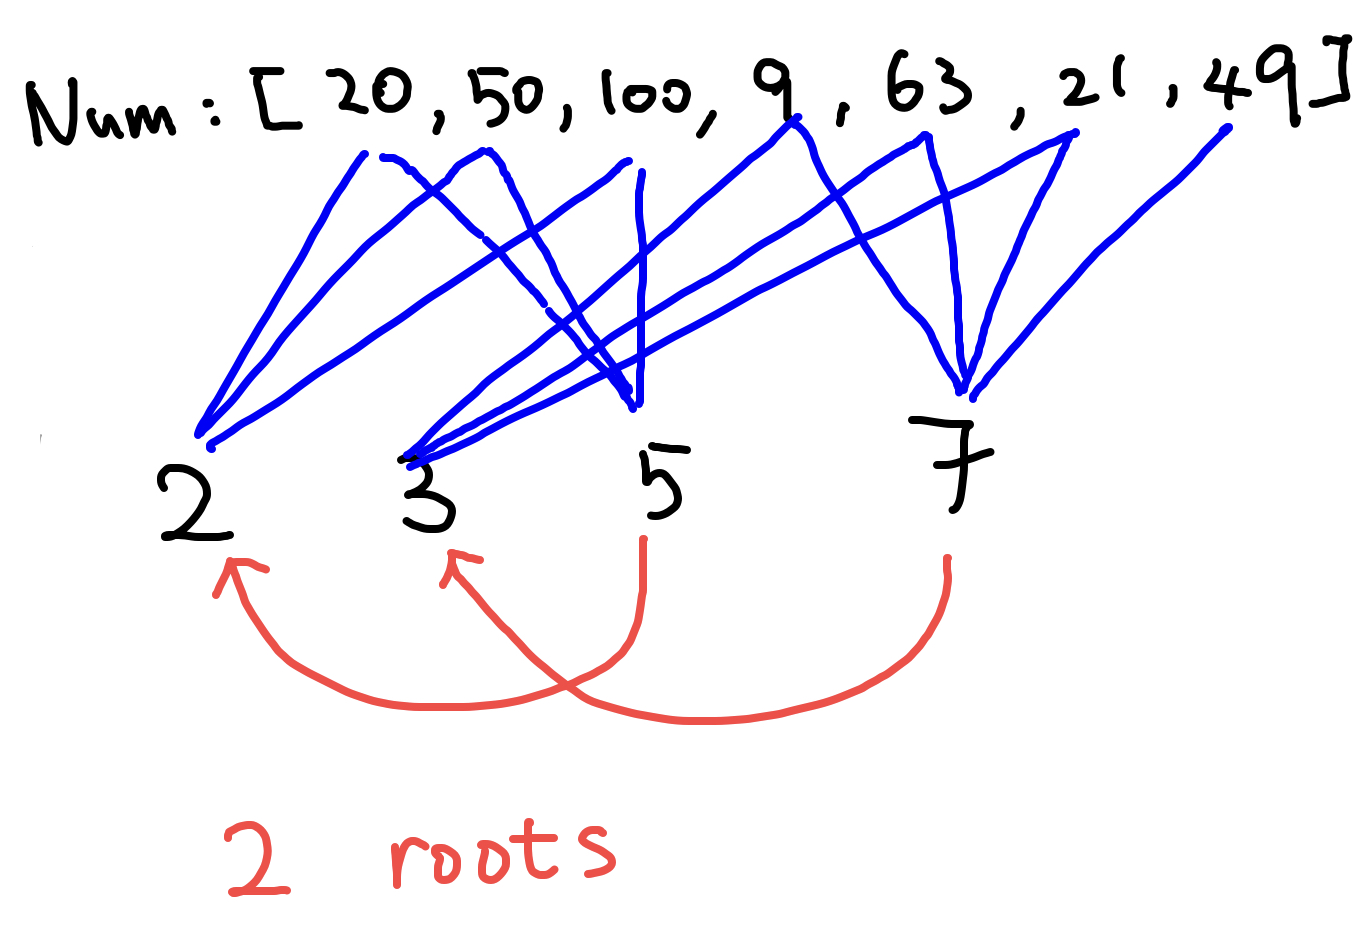 Num: [20, 50, 100, 9, 63, 21, 49]
2 3 5 7
2 roots